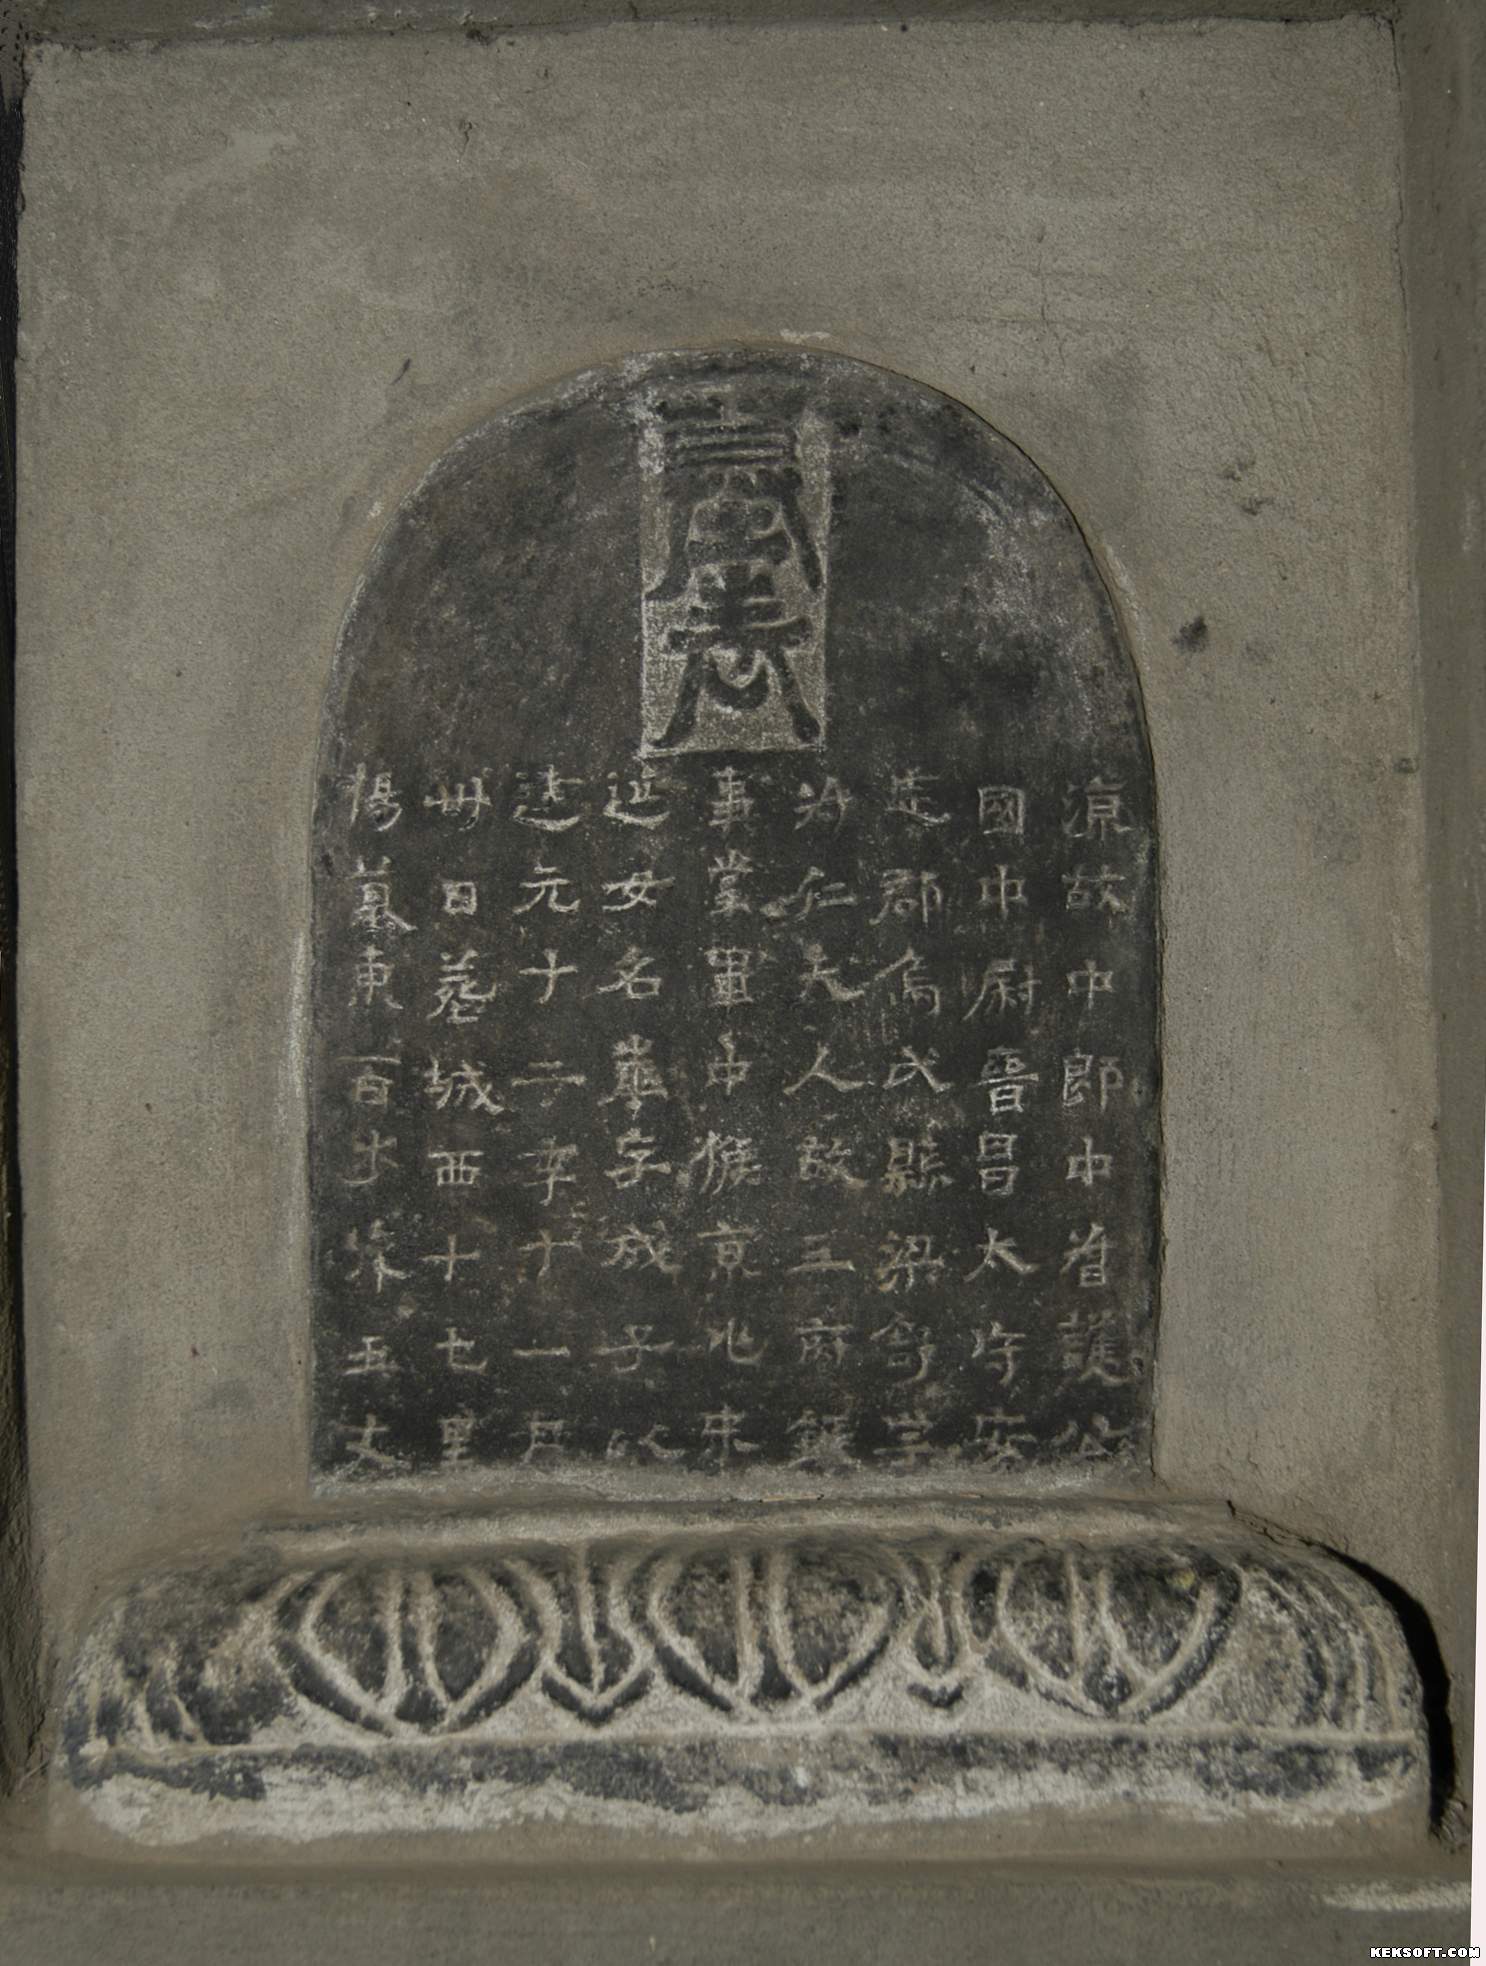 墓表
涼故中郎中督護公
國中尉晉昌太守安
定郡烏氏縣梁舒字
叔仁夫人故三府錄
事掌軍中候京兆宋
延女名華字成子以
建元十二年十一月
卅日葬城西十七里
楊墓東百步深五丈
KEKSOFT.COM